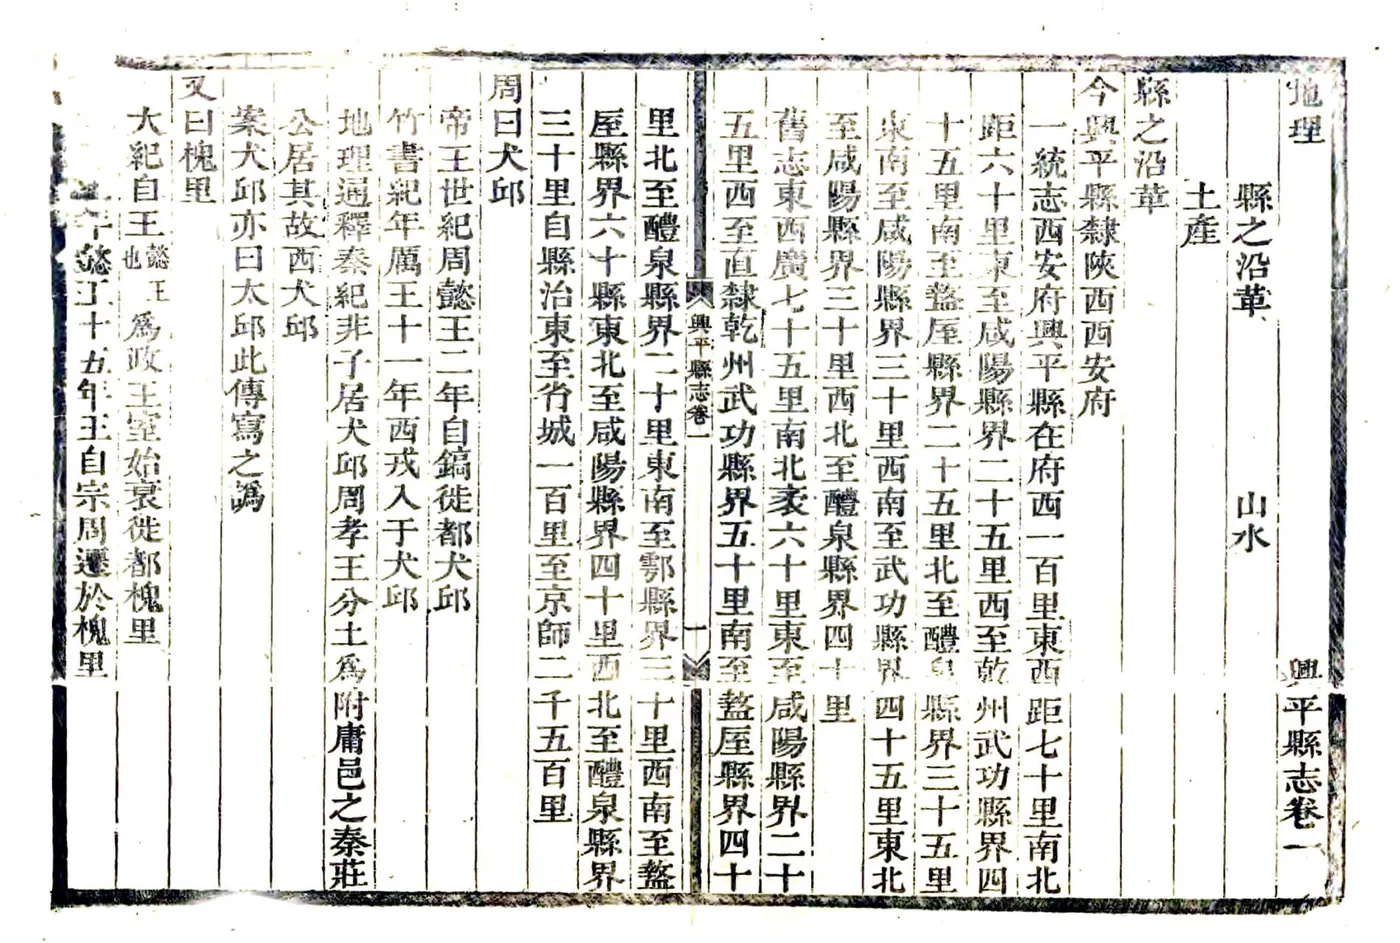 地理 興平縣志卷一
縣之沿革 山水
土產
縣之沿革
今興平縣隸陝西西安府
一統志西安府興平縣在府西一百里東西距七十里南北
距六十里東至咸陽縣界二十五里西至乾州武功縣界四
十五里南至盩厔縣界二十五里北至醴泉縣界三十五里
東南至咸陽縣界三十里西南至武功縣界四十五里東北
至咸陽縣界三十里西北至醴泉縣界四十里
舊志東西廣七十五里南北袤六十里東至咸陽縣界二十
五里西至直隸乾州武功縣界五十里南至盩厔縣界四十
興平縣志卷一 一
里北至醴泉縣界二十里東南至鄠縣界三十里西南至盩
厔縣界六十縣東北至咸陽縣界四十里西北至醴泉縣界
三十里自縣治東至省城一百里至京師二千五百里
周曰犬邱
帝王世紀周懿王二年自鎬徙都犬邱
竹書紀年厲王十一年西戎入于犬邱
地理通釋秦紀非子居犬邱周孝王分土爲附庸邑之秦莊
公居其故西犬邱
案犬邱亦曰太邱此傳寫之譌
又曰槐里
大紀自王懿王也爲政王室始衰徙都槐里
懿王十五年王自宗周遷於槐里